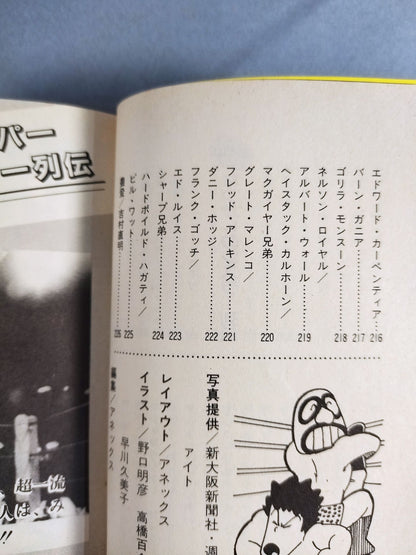 エドワード・カーペンティア 216
バーン・ガニア………217
ゴリラ・モンスーン………218
ネルソン・ロイヤル／
アルバート・ウォール………219
ヘイスタック・カルホーン／
マクガイヤー兄弟………220
グレート・マレンコ／
フレッド・アトキンス………221
ダニー・ホッジ………222
フランク・ゴッチ／
エド・ルイス………223
シャープ兄弟………224
ハードボイルド・ハガティ／
ビル・ワット………225
豊登／吉村道明………226
写真提供／新大阪新聞社・週
アイト
レイアウト／アネックス
イラスト／野口明彦 高橋百
早川久美子
編集／アネックス
パー
ー列伝
流み
超人は、
!!